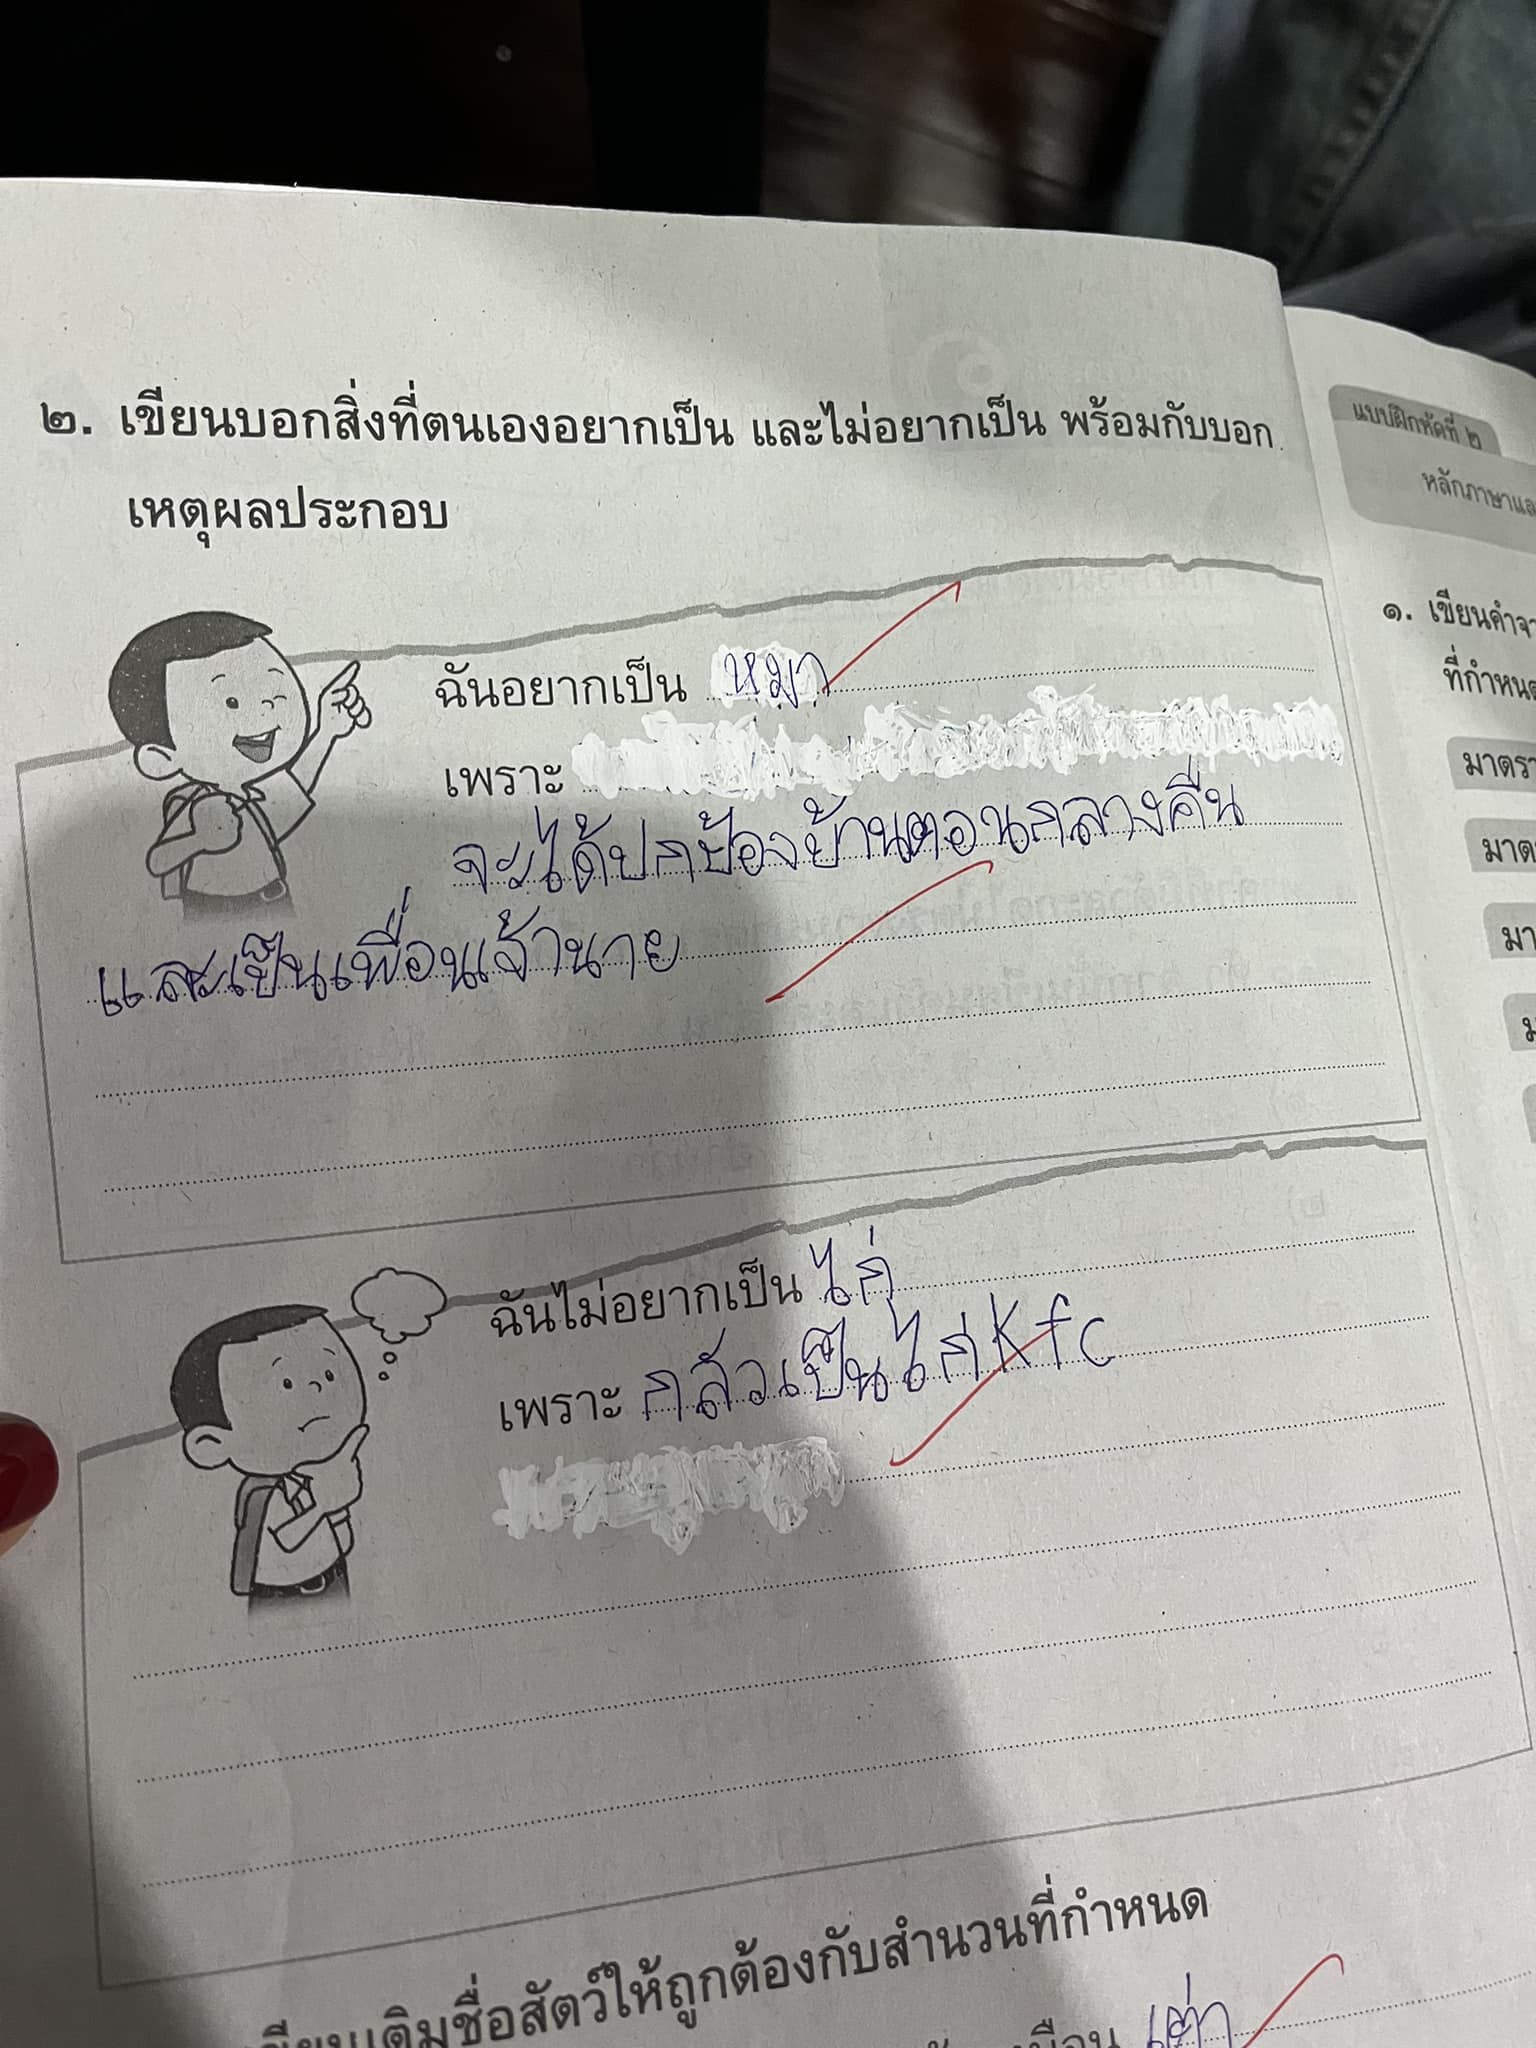 ๒. เขียนบอกสิ่งที่ตนเองอยากเป็น และไม่อยากเป็น พร้อมกับบอก
เหตุผลประกอบ
ฉันอยากเป็น หมา
เพราะ
จะได้ปกป้องบ้านตอนกลางคืน
และเป็นเพื่อนเจ้านาย
ฉันไม่อยากเป็น ไก่
เพราะ กลัวเป็นไก่ Kfc
เติมชื่อสัตว์ให้ถูกต้องกับสำนวนที่กำหนด
เต่า
แบบฝึกหัดที่ ๒
หลักภาษาแล
๑. เขียนคำจา
ที่กำหนด
มาตรา
มาต
มา
ม